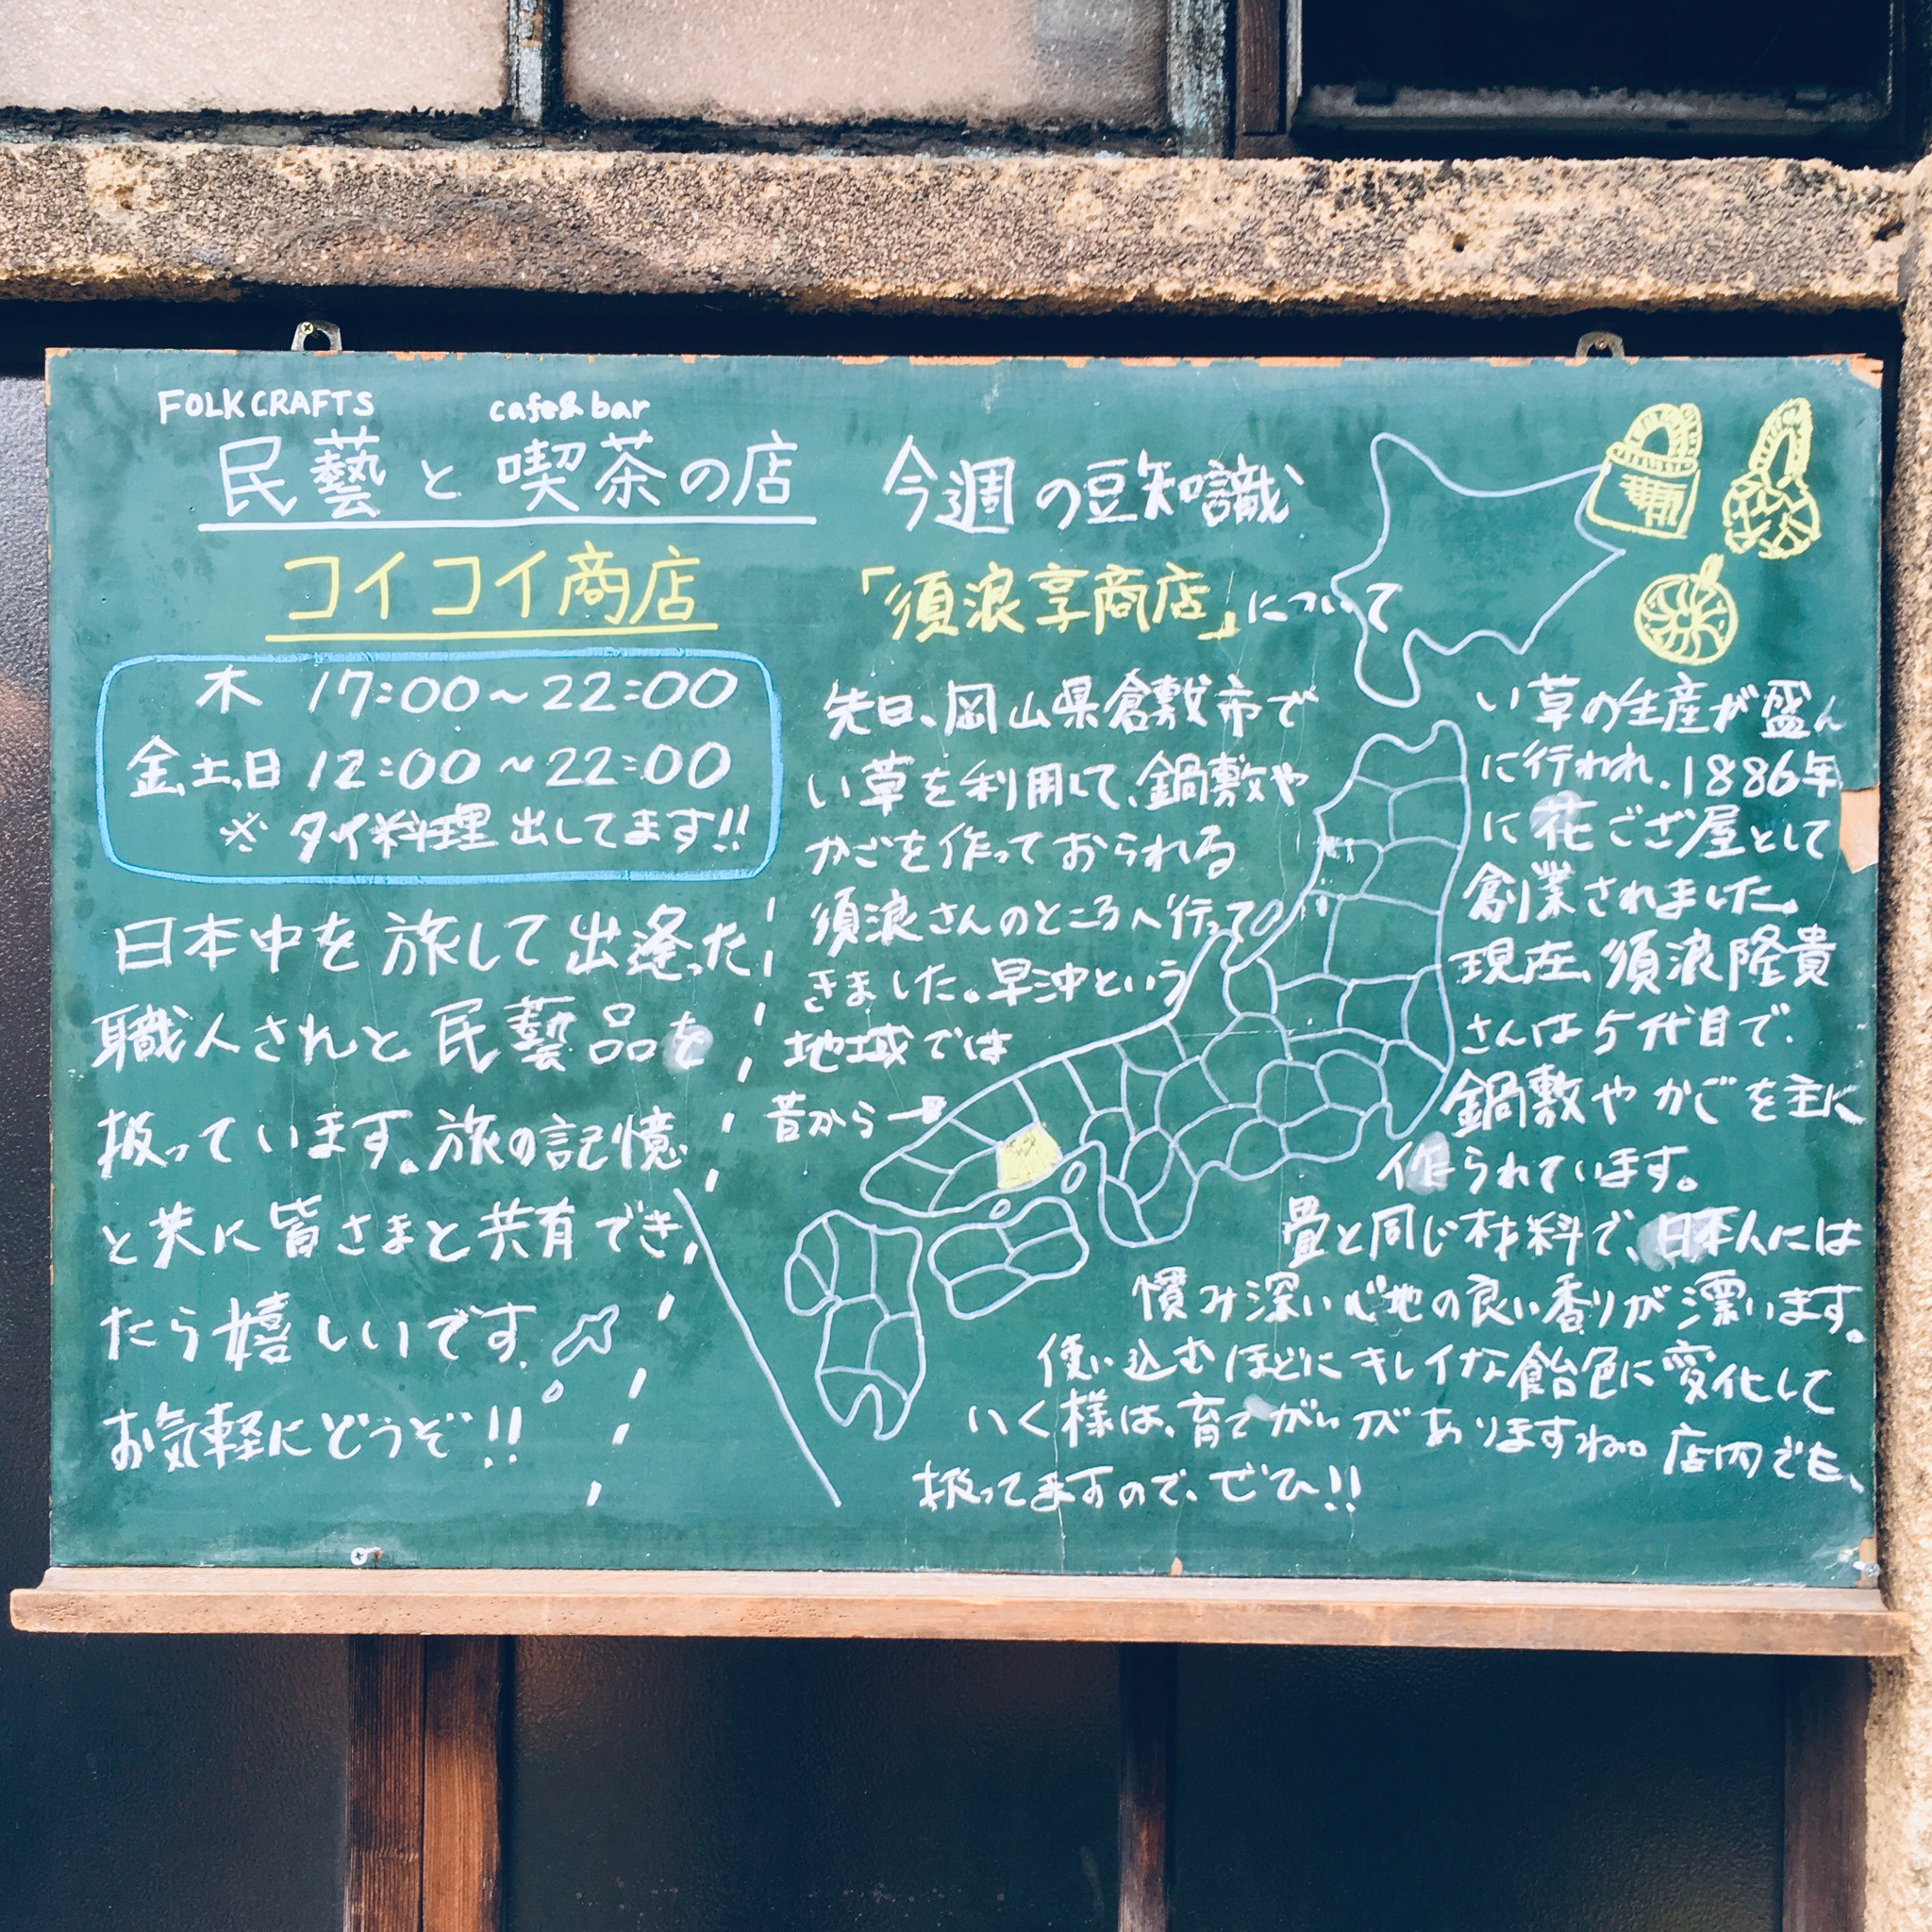 FOLKCRAFTS cafe&bar
民藝と喫茶の店
コイコイ商店
木 17:00~22:00
金、土、日 12:00~22:00
※ タイ料理出してます!!
日本中を旅して出逢った
職人さんと民藝品を
扱っています。旅の記憶
と共に皆さまと共有でき
たら嬉しいです。
お気軽にどうぞ!!
今週の豆知識
「須浪亨商店」について
先日、岡山県倉敷市で
い草を利用して、鍋敷や
かごを作っておられる
須浪さんのところへ行って
きました。早沖という
地域では
昔から→
い草の生産が盛ん
に行われ、1886年
に花ござ屋として
創業されました。
現在、須浪隆貴
さんは5代目で、
鍋敷やかごを主に
作られています。
畳と同じ材料で、日本人には
慣み深い心地の良い香りが漂います。
使い込むほどにキレイな飴色に変化して
いく様は、育てがいがありますね。店内でも、
扱ってますので、ぜひ!!